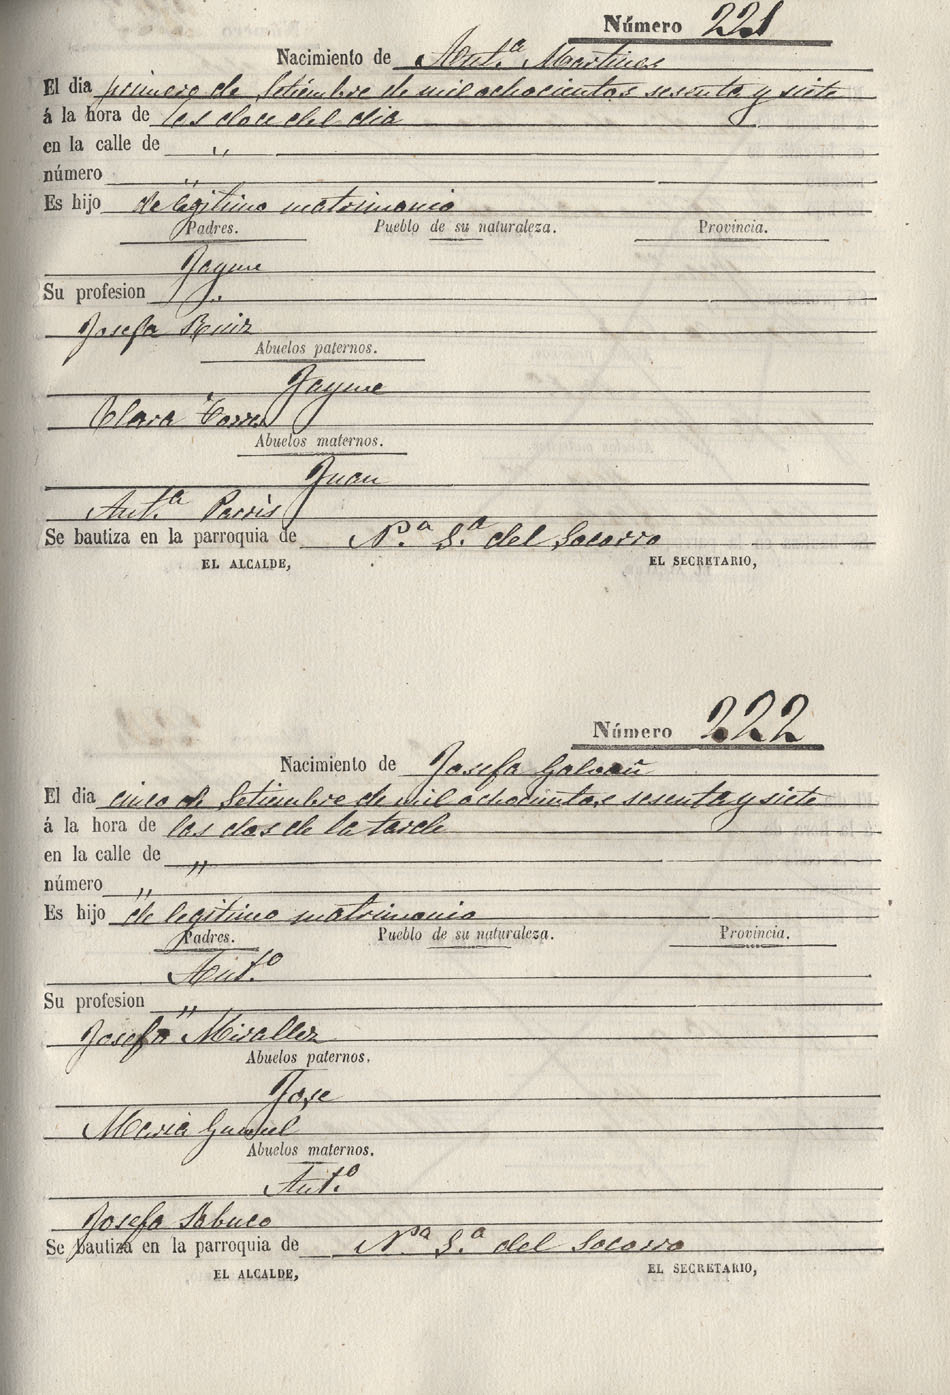 Número 221
Nacimiento de Ant.ª Martines
El dia primero de Setiembre de mil ochocientos sesenta y siete
á la hora de las doce del dia
en la calle de "
número "
Es hijo de legitimo matrimonio
Padres. Pueblo de su naturaleza. Provincia.
Jayme
Su profesion "
Josefa Ruiz
Abuelos paternos.
Jayme
Clara Torres
Abuelos maternos.
Juan
Ant.ª Parris
Se bautiza en la parroquia de N.ª S.ª del Socorro
EL ALCALDE, EL SECRETARIO,
Número 222
Nacimiento de Josefa Galvañ
El dia cinco de Setiembre de mil ochocientos sesenta y siete
á la hora de las dos de la tarde
en la calle de "
número "
Es hijo de legitimo matrimonio
Padres. Pueblo de su naturaleza. Provincia.
Ant.º
Su profesion "
Josefa Miralles
Abuelos paternos.
Jose
Maria
Abuelos maternos.
Ant.º
Josefa Sabuco
Se bautiza en la parroquia de N.ª S.ª del Socorro
EL ALCALDE, EL SECRETARIO,